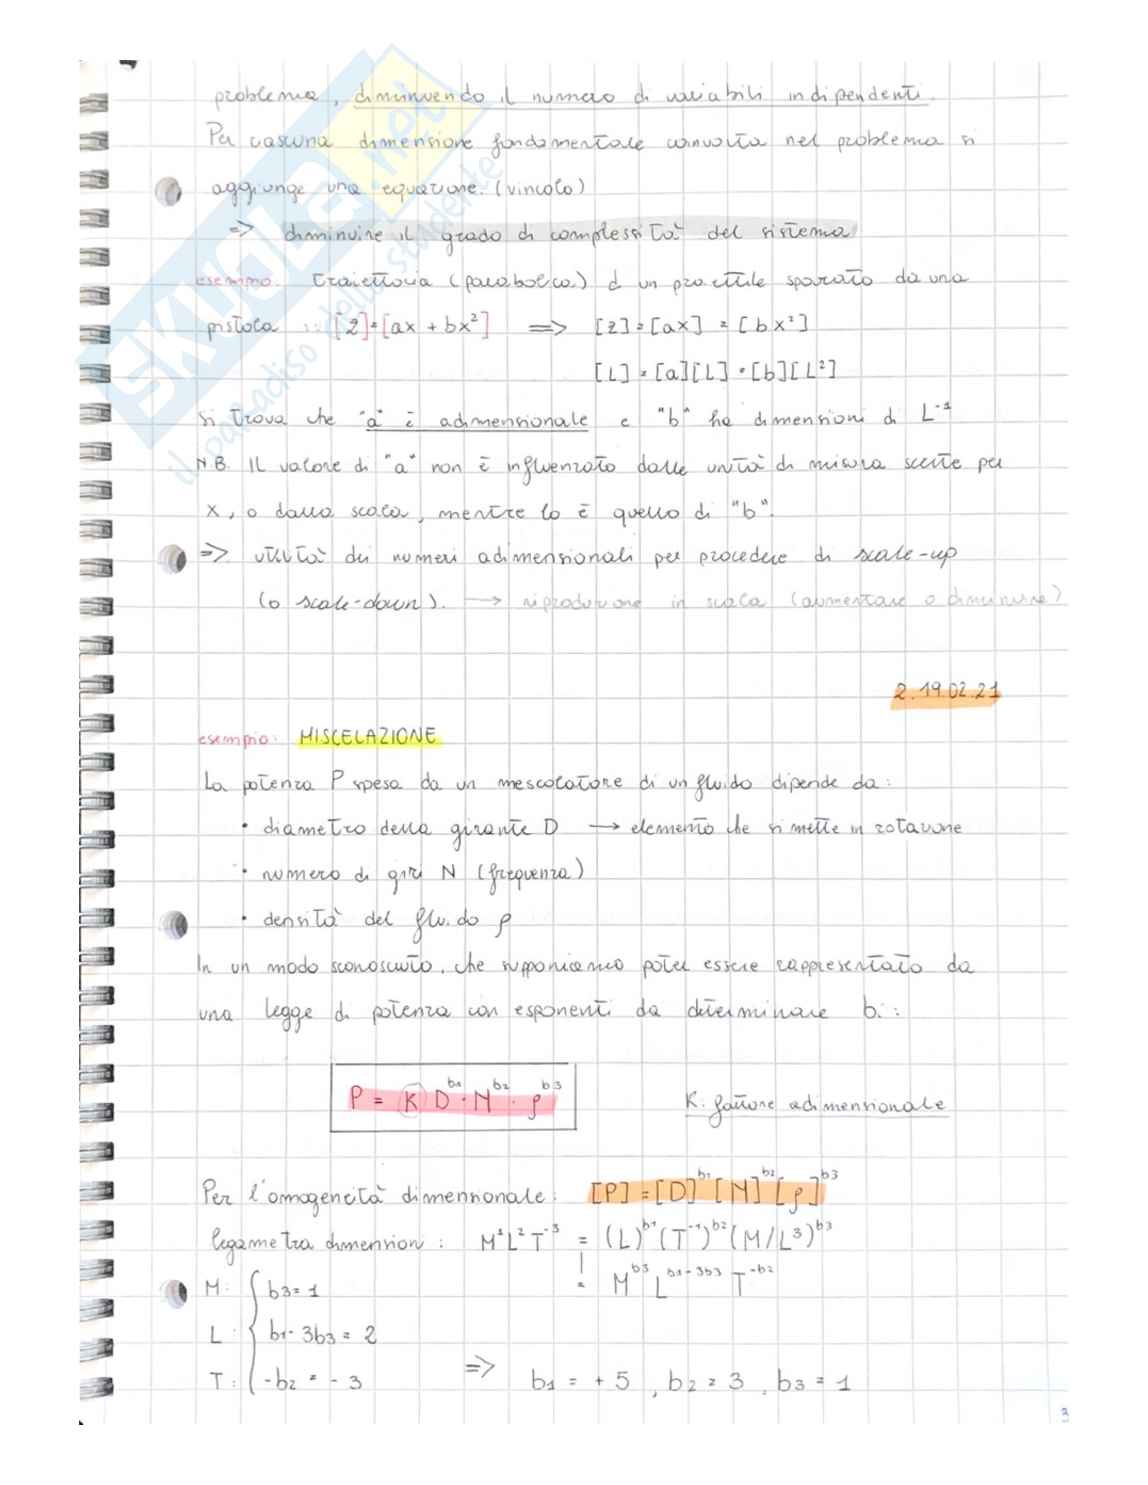 problema, diminuendo il numero di variabili indipendenti.
Per ciascuna dimensione fondamentale coinvolta nel problema si
aggiunge una equazione. (vincolo)
=> diminuire il grado di complessità del sistema
esempio: traiettoria (parabolica) di un proiettile sparato da una
pistola :: [z]=[ax + bx²] => [z]=[ax] = [bx²]
[L]=[a][L]=[b][L²]
Si trova che "a" è adimensionale e "b" ha dimensioni di L⁻¹
N.B. Il valore di "a" non è influenzato dalle unità di misura scelte per
x, o dalla scala, mentre lo è quello di "b".
=> utilità dei numeri adimensionali per procedere di scale-up
(o scale-down). → riproduzione in scala (aumentare o diminuire)
2. 19.02.21
esempio: MISCELAZIONE
La potenza P spesa da un mescolatore di un fluido dipende da:
• diametro della girante D → elemento che si mette in rotazione
• numero di giri N (frequenza)
• densità del fluido ρ
In un modo sconosciuto, che supponiamo poter essere rappresentato da
una legge di potenza con esponenti da determinare bi:
P = K D^b1 · N^b2 · ρ^b3 K: fattore adimensionale
Per l'omogeneità dimensionale: [P]=[D]^b1 [N]^b2 [ρ]^b3
legame tra dimensioni: M¹L²T⁻³ = (L)^b1 (T⁻¹)^b2 (M/L³)^b3
= M^b3 L^b1-3b3 T^-b2
M: { b3=1
L: { b1-3b3 = 2
T: { -b2 = -3 => b1 = +5, b2=3, b3=1
3
SKUOLA.net
il paradiso dello studente